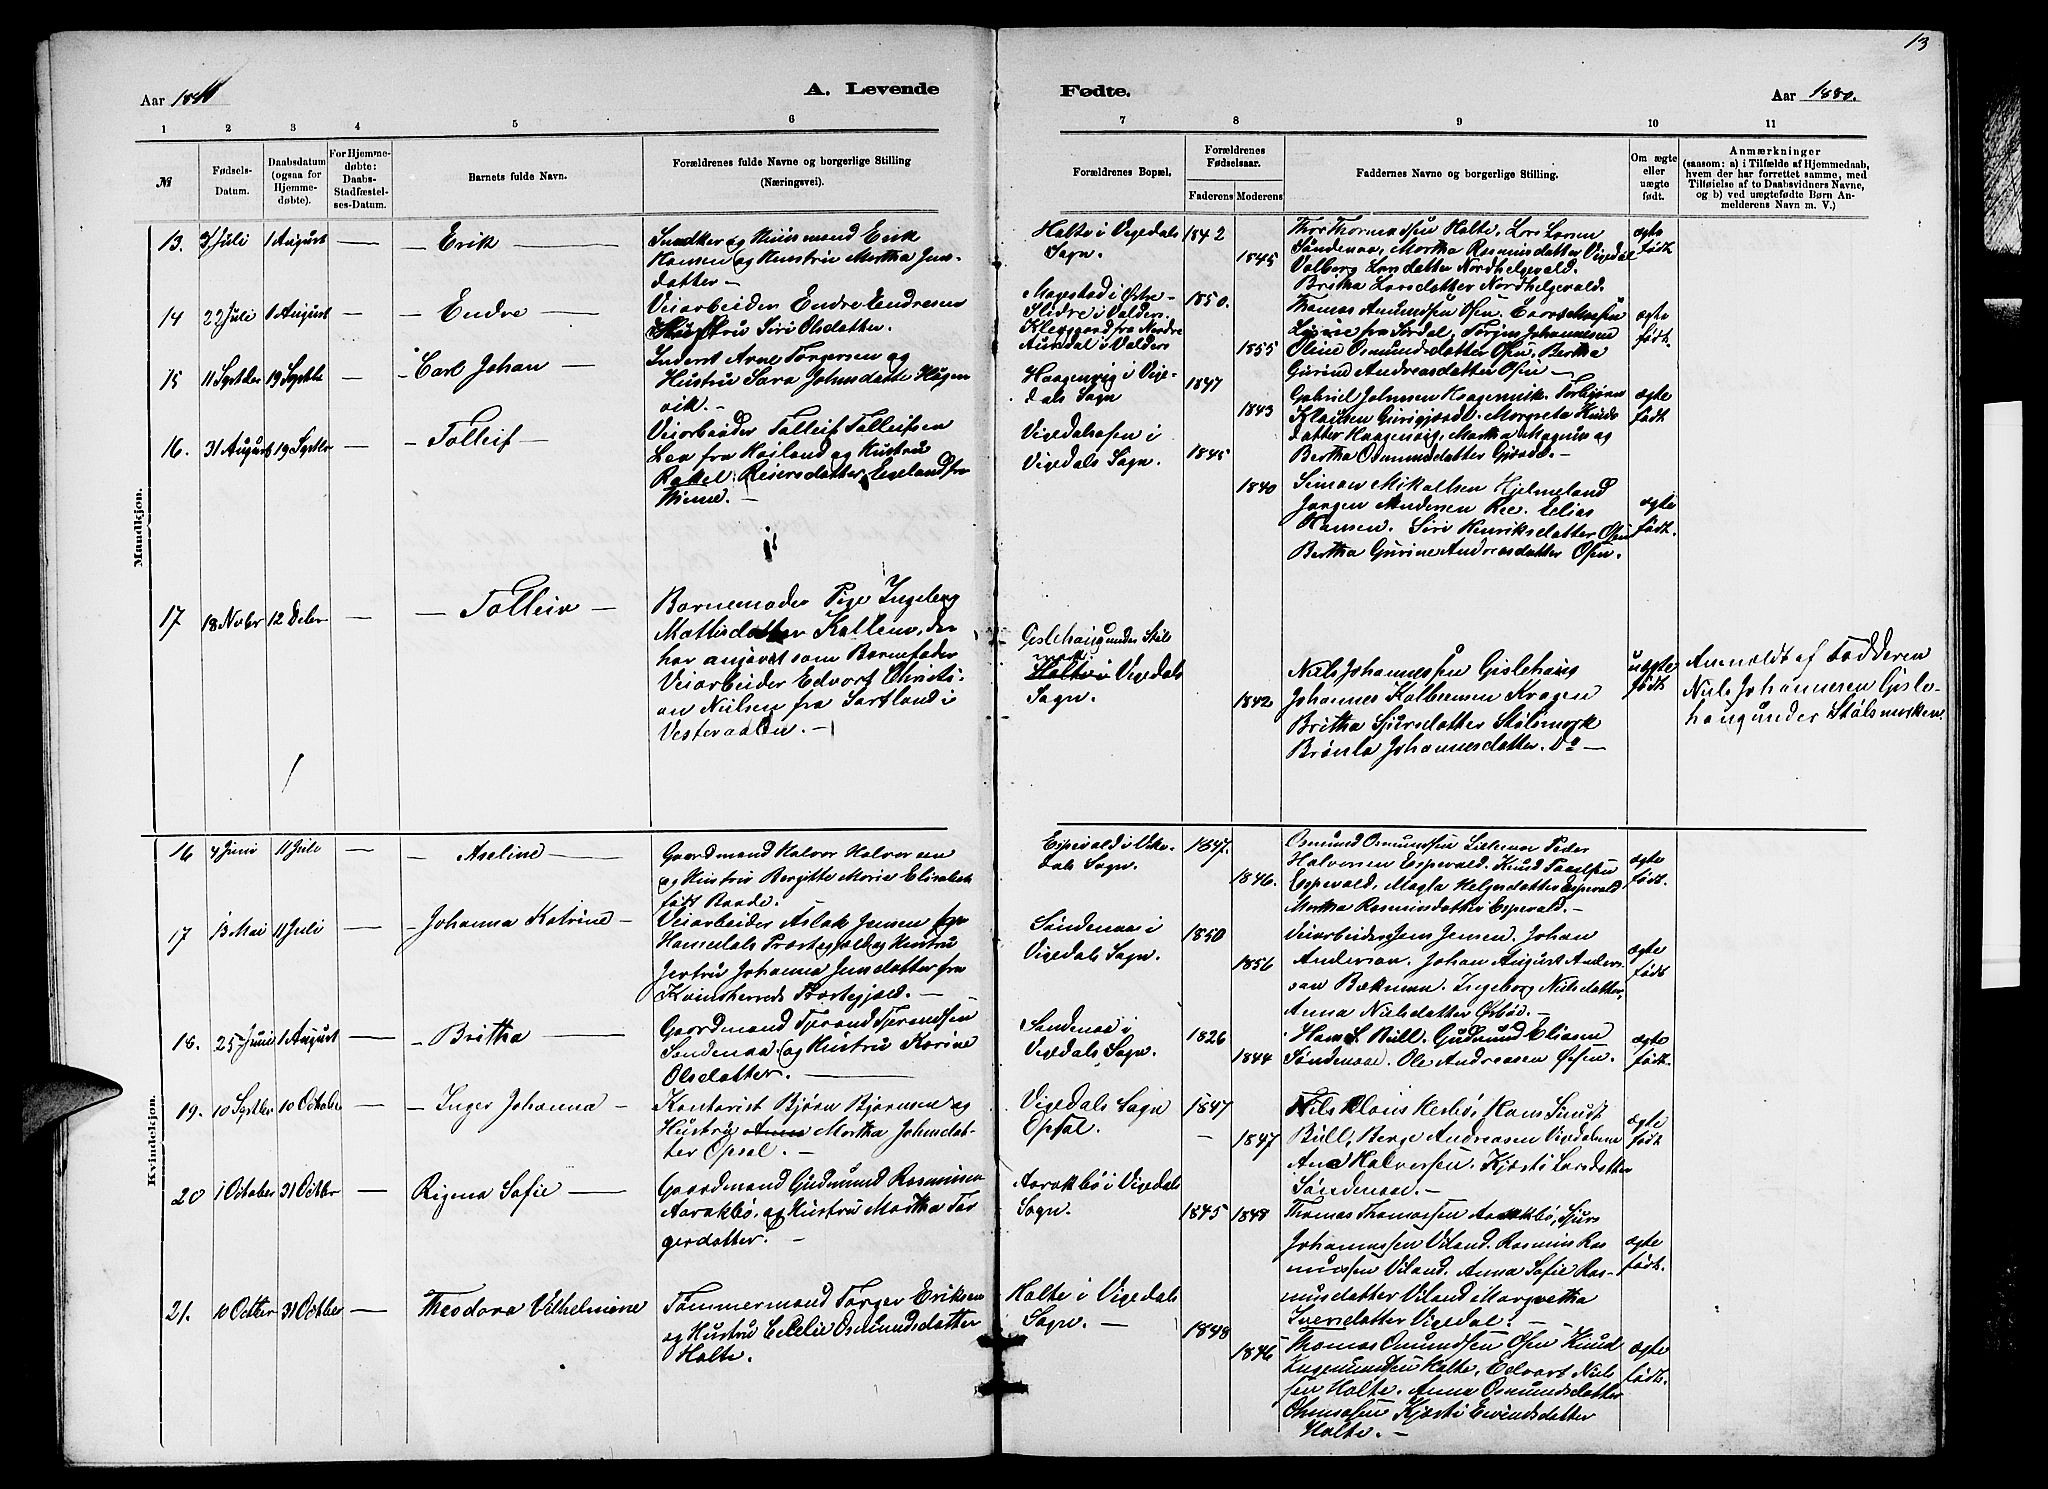 13
Aar 1880
A. Levende
Fødte.
Aar 1880.
1 2 3 4 5 6 7 8 9 10 11
№
Fødsels-
Datum.
Daabsdatum
(ogsaa for
Hjemme-
døbte).
For Hjemme-
døbte:
Daabs-
Stadfæstel-
ses-Datum.
Barnets fulde Navn.
Forældrenes fulde Navne og borgerlige Stilling
(Næringsvei).
Forældrenes Bopæl.
Forældrenes
Fødselsaar.
Faderens Moderens
Faddernes Navne og borgerlige Stilling.
Om ægte
eller
uægte
født.
Anmærkninger
(saasom: a) i Tilfælde af Hjemmedaab,
hvem der har forrettet samme, med
Tilføielse af to Daabsvidners Navne,
og b) ved uægtefødte Børn An-
melderens Navn m. V.)
Mandkjøn.
13. 3 Juli 1 August — — Erik —
Snedker og Huusmand Erik
Hansen og Hustru Martha Jens-
datter —
Halte i Vigedals
Sogn.
1842
1845
Thor Thormodsen Halte, Lars Larsen
Søndenaa, Martha Rasmusdatter Vigedal
Valborg Larsdatter Nordhelgevald.
Britha Larsdatter Nordhelgevald.
ægte
født
14 22 Juli 1 August — — Endre —
Veiarbeider Endre Endresen
Hustru Siri Olsdatter.
Magestad i Østre
Slidre i Valders.
Kleggaard fra Nordre
Aurdal i Valders
1850.
1855
Thomas Amundsen Osen,
fra Sørdal, Torger Johannesen
Oline Osmundsdatter Osen, Bertha
Gurine Andreasdatter Osen —
ægte
født.
15 11 Septber 19 Septbr — — Carl Johan —
Inderst Arne Torgersen og
Hustru Sara Johnsdatter Haagen
vik. —
Haagenvig i Vige-
dals Sogn
1847
1843
Gabriel Johnsen Haagenvik. Torbjørn
Klausen. Margreta Knuds
datter Haagenvig, Martha Magnus og
Bertha Osmundsdatter —
ægte
født.
16. 31 August 19 Septbr — — Tolleif —
Veiarbeider Tolleif Tolleifsen
Lea fra Høiland og Hustru
Rakel Reiersdatter Egeland fra
Vigedalsosen i
Vigedals Sogn.
1845
1840
Simon Mikalsen Hjelmeland
Jørgen Andersen Ree. Elias
Hansen. Siri Henriksdatter Osen
Bertha Gurine Andreasdatter Osen.
ægte
født.
17 18 Novbr 12 Decbr — — Tolleiv —
Barnemoder Pige Ingeborg
Mattisdatter Kallem, der
har angivet som Barnefader
Veiarbeider Edvart Christi-
an Nielsen fra Sortland i
Vesteraalen. —
Gislehaug under Støls
mark
Halte i Vigedals
Sogn.
1842
Niels Johannessen Gislehaug
Johannes Kolbensen Kragen
Britha Sjursdatter Stølsmark
Brønla Johannesdatter. Do —
uægte
født
Anmeldt af Fadderen
Niels Johannesen Gisle-
haug under Stølsmarken.
Kvindekjøn.
16 4 Juni 11 Juli — — Aseline —
Gaardmand Halvor Halvorsen
og Hustru Bergitte Marie Elisabeth
født Baade.
Espevald i Vike-
dals Sogn.
1847.
1846.
Osmund Osmundsen Lillenaa Peder
Halvorsen Espevald. Knud Paalsen
Espevald, Magla Helgesdatter Espevald
Martha Rasmusdatter Espevald. —
ægte
født.
17 13 Mai 11 Juli — — Johanna Katrine —
Veiarbeider Aslak Jensen fra
Hamedals Præstegjeld og Hustru
Jertru Johanna Jensdatter fra
Kvinsherreds Præstegjæld. —
Søndenaa i
Vigedals Sogn.
1850
1856
Veiarbeider Jens Jensen. Johan
Anderson. Johan August Anders-
son Bekman. Ingeborg Nielsdatter,
Anna Nielsdatter Ørbøe. —
ægte
født
18. 25 Juni 1 August — — Britha —
Gaardmand Tjerand Tjerandsen
Søndenaa og Hustru Karine
Olsdatter. —
Søndenaa i
Vigedals Sogn.
1826
1844
Hans S. Bull. Gudmund Eliasen
Søndenaa. Ole Andreasen Osen.
ægte
født.
19. 10 Septbr 10 Octobr — — Inger Johanna —
Kontorist Bjørn Bjørnsen og
Hustru Anna Martha Johnsdat-
ter Opsal. —
Vigedals Sogn
Opsal.
1847
1847
Nils Klaus Kesbøe Hans Smidt
Bull, Berge Andreasen Vigedal
Ane Halvorsen. Kjøsti Larsdatter
Søndenaa. —
ægte
født
20 1 October 31 Octbr — Rigena Sofie —
Gaardmand Gudmund Rasmusen
Aarakbø. og Hustru Martha Tor
gersdatter. —
Aarakbø i Vigedals
Sogn.
1845 1848
Thomas Thomassen Aarakbø, Sjurs
Johannessen Viland. Rasmus Ras
mussen Viland. Anna Sofie Ras-
musdatter Viland Margretha
Iversdatter Vigedal. —
ægte
født.
21. 10 Octbr 31 Octbr — Theodora Vilhelmine
Tømmermand Torger Eriksen
og Hustru Cecelie Osmundsdatter
Halte.
Halte i Vigedals
Sogn. —
1848
1846
Thomas Omundsen Osen Knud
Ingemundsen Halte, Edvart Niels
sen Halte. Anna Osmundsdatter
Kjøsti Eivindsdatter
Halte. —
ægte
født.